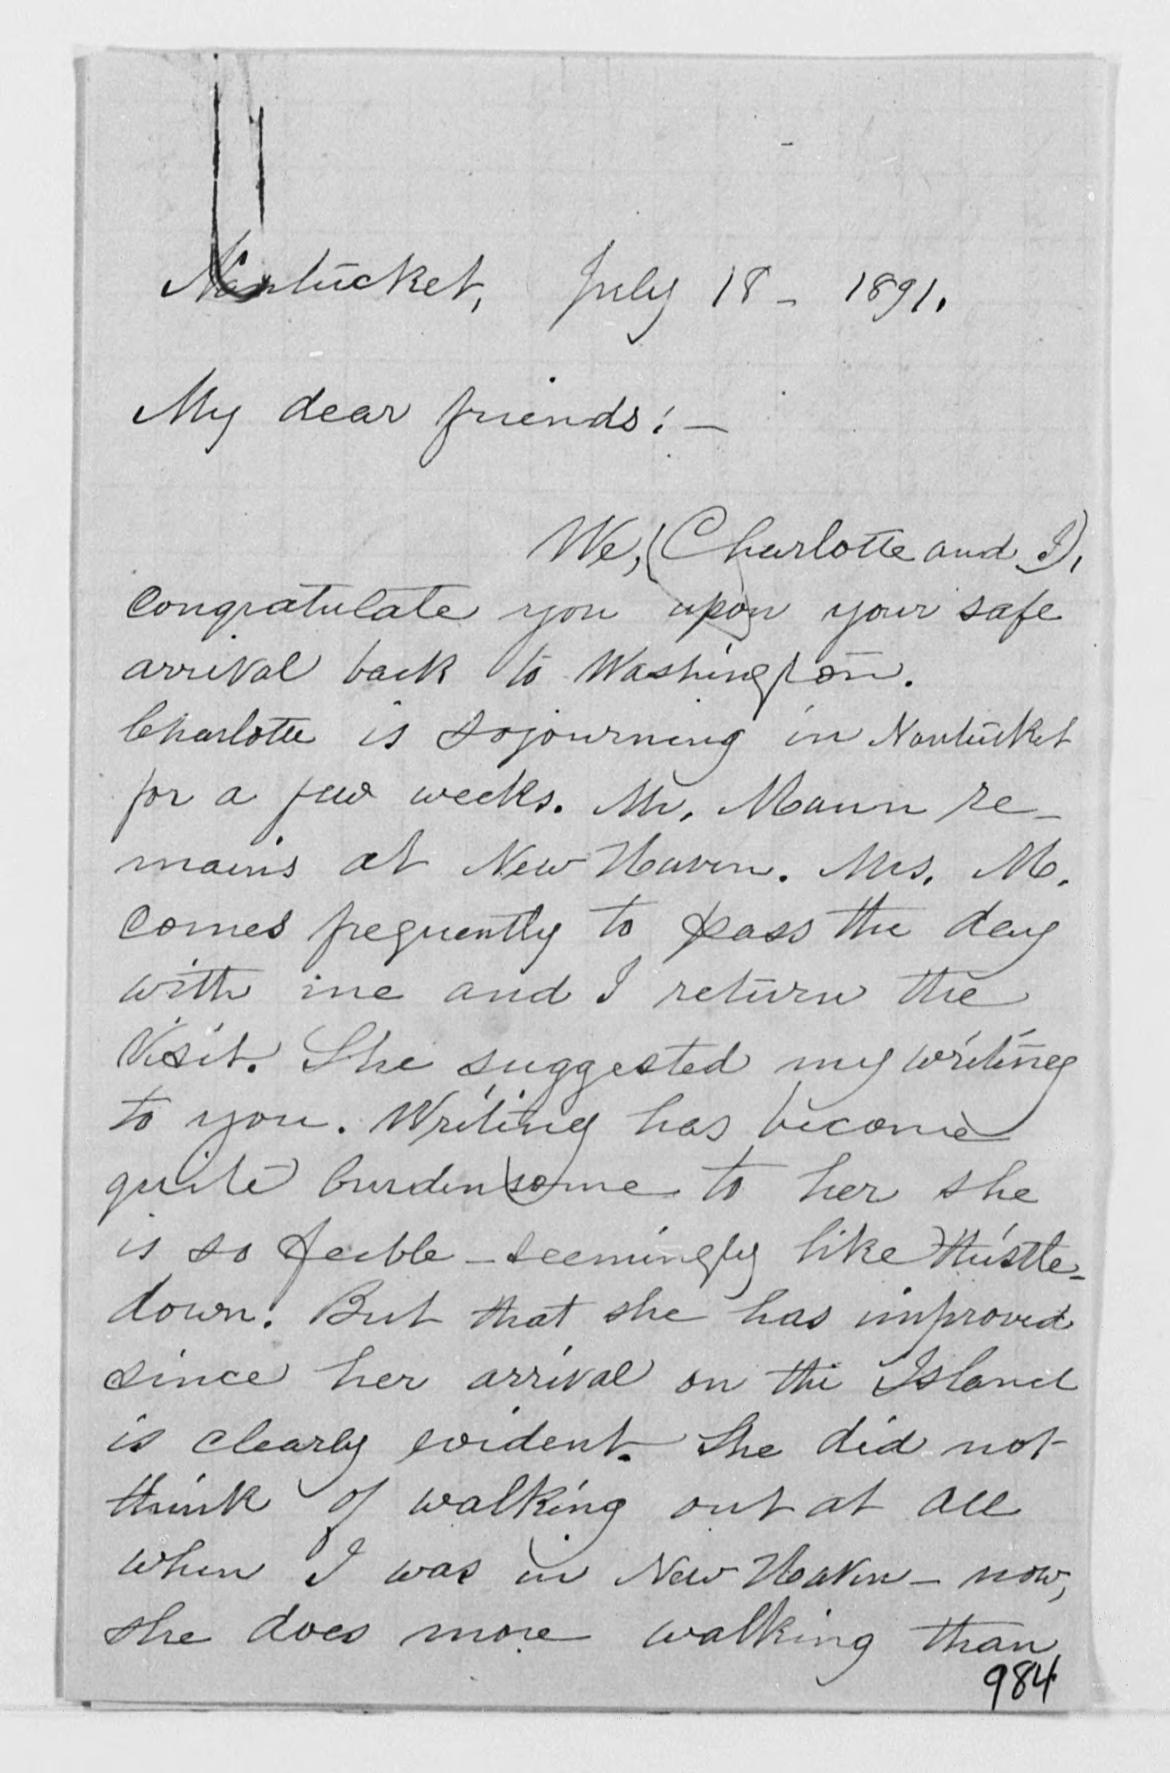 Nantucket, July 18 - 1891.
My dear friends: —
We, (Charlotte and I),
congratulate you upon your safe
arrival back to Washington.
Charlotte is sojourning in Nantucket
for a few weeks. Mr. Mann re-
mains at New Haven. Mrs. M.
comes frequently to pass the day
with me and I return the
visit. She suggested my writing
to you. Writing has become
quite burdensome to her she
is so feeble - seemingly like thistle-
down. But that she has improved
since her arrival on the Island
is clearly evident. She did not
think of walking out at all
when I was in New Haven - now,
she does more walking than
984